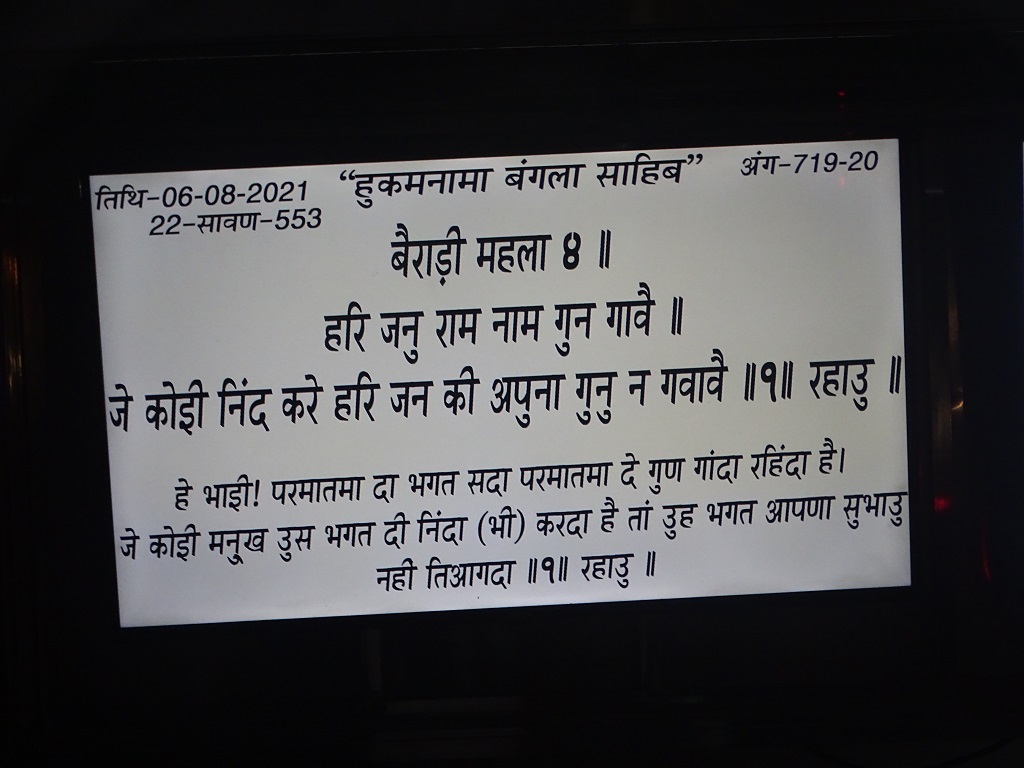 तिथि-06-08-2021 “हुकमनामा बंगला साहिब” अंग-719-20
22-सावण-553
बैराड़ी महला 8 ॥
हरि जनु राम नाम गुन गावै ॥
जे कोई निंद करे हरि जन की अपुना गुनु न गवावै ॥१॥ रहाउ ॥
हे भाई! परमातमा दा भगत सदा परमातमा दे गुण गांदा रहिंदा है।
जे कोई मनु्ख उस भगत दी निंदा (भी) करदा है तां उह भगत आपणा सुभाउ
नही तिआगदा ॥१॥ रहाउ ॥